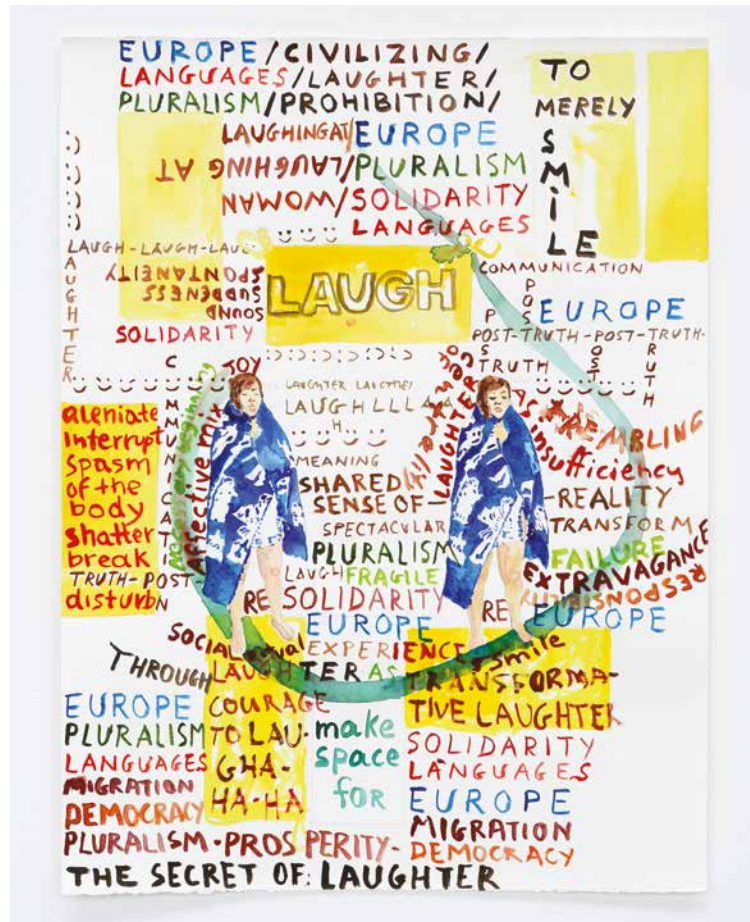 EUROPE/CIVILIZING/
LANGUAGES/LAUGHTER/
PLURALISM/PROHIBITION/
LAUGHINGAT/EUROPE
LAUGHING AT/PLURALISM
WOMAN/SOLIDARITY
LANGUAGES
TO
MERELY
SMILE
LAUGH-LAUGH-LAUGH
LAUGHTER
SPONTANEITY
SUDDENESS
SOUND
SOLIDARITY
LAUGH
COMMUNICATION
POST
EUROPE
POST-TRUTH-POST-TRUTH-
TRUTH
POST
TRUTH
JOY
COMMUNICATION
Affective mix
LAUGHTER
LAUGHLLLAAA
H
MEANING
SHARED
SENSE OF-
LAUGHTER
SPECTACULAR
PLURALISM
LAUGH FRAGILE
RE SOLIDARITY
EUROPE
EXPERIENCE
aleniate
interrupt
spasm
of the
body
shatter
break
TRUTH-POST-
disturb
TREMBLING
AS insufficiency
-REALITY
TRANSFORM
FAILURE
EXTRAVAGANCE
RESPONSIBILITY
RE EUROPE
SOCIAL
THROUGH
LAUGHTER AS
smile
TRANSFORMA-
TIVE LAUGHTER
EUROPE
PLURALISM
LANGUAGES
MIGRATION
DEMOCRACY
COURAGE
TO LAU-
GHA-
HA-HA
make
space
for
SOLIDARITY
LANGUAGES
EUROPE
MIGRATION
DEMOCRACY
PLURALISM-PROSPERITY-
THE SECRET OF: LAUGHTER